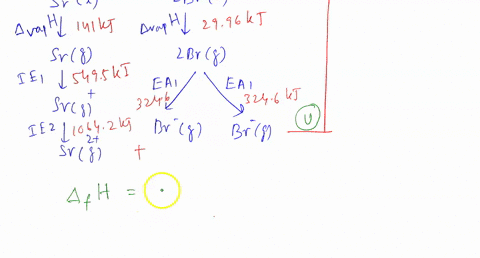 Sr(l) 2Br(g)
ΔvapH ↓ 141 kJ ΔvapH ↓ 29.96 kJ
Sr(g) 2Br(g)
IE1 ↓ 549.5 kJ EA1 EA1
Sr⁺(g) 324.6 324.6 kJ
IE2 ↓ 1064.2 kJ Br⁻(g) Br⁻(g) U
Sr²⁺(g) +
ΔfH =